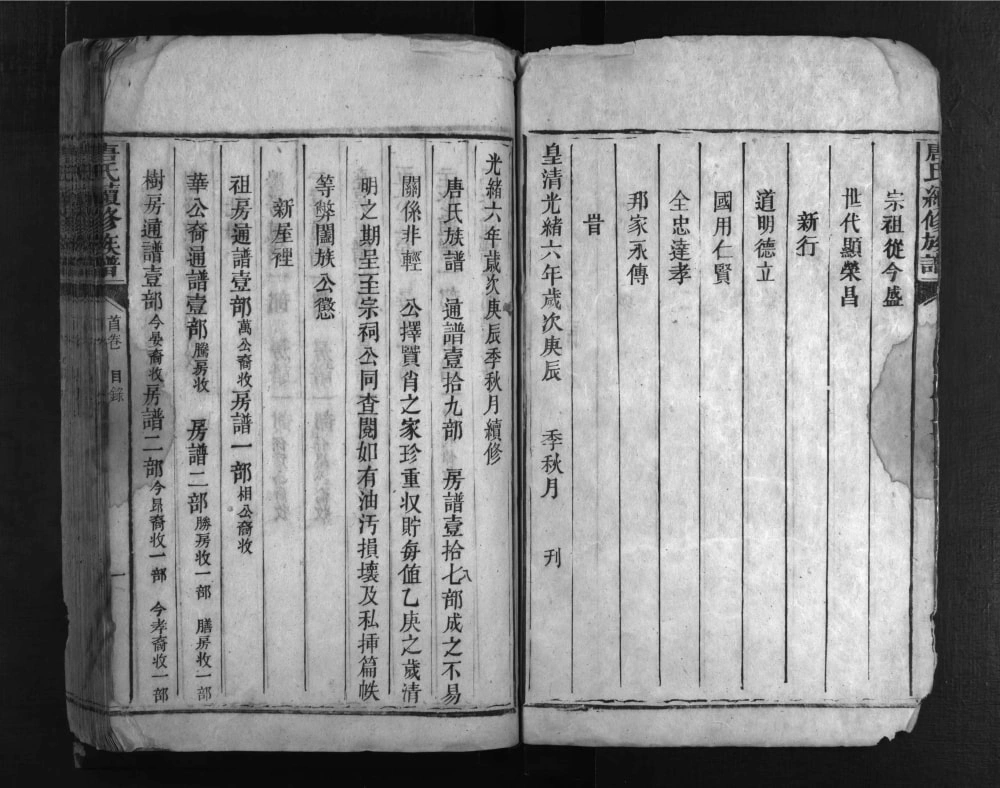 唐氏續修族譜
宗祖從今盛
世代顯榮昌
新行
道明德立
國用仁賢
全忠達孝
邦家永傳
皇清光緒六年歲次庚辰 季秋月 刊
光緒六年歲次庚辰季秋月續修
唐氏族譜 通譜壹拾九部 房譜壹拾七八部成之不易
關係非輕 公擇賢肖之家珍重収貯每值乙庚之歲清
明之期呈至宗祠公同查閱如有油汚損壞及私揷篇帙
等弊闔族公懲
新屋裡
祖房通譜壹部萬公裔收房譜一部相公裔收
華公裔通譜壹部騰房收 房譜二部勝房收一部 膳房收一部
樹房通譜壹部今晏裔收房譜二部今昻裔收一部 今孝裔收一部
唐氏續修族譜 首卷 目錄 一